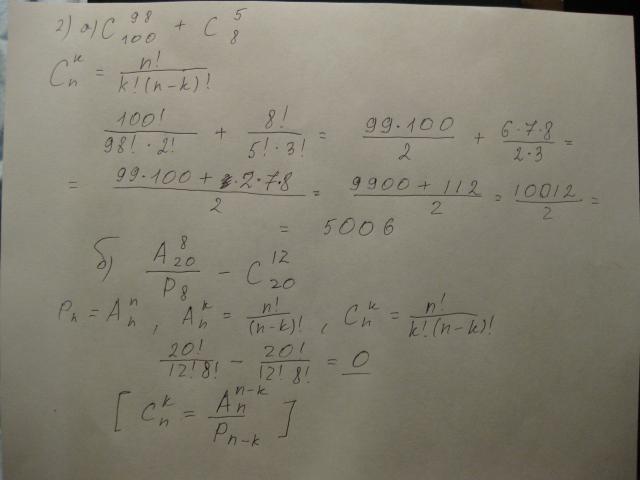 2) а) C₁₀₀⁹⁸ + C₈⁵
Cₙᵏ = n! / k!(n-k)!
100! / 98!·2! + 8! / 5!·3! = 99·100 / 2 + 6·7·8 / 2·3 =
= 99·100 + 2·7·8 / 2 = 9900 + 112 / 2 = 10012 / 2 =
= 5006
б) A₂₀⁸ / P₈ - C₂₀¹²
Pₙ = Aₙⁿ, Aₙᵏ = n! / (n-k)!, Cₙᵏ = n! / k!(n-k)!
20! / 12!8! - 20! / 12!8! = 0
[Cₙᵏ = Aₙⁿ⁻ᵏ / Pₙ₋ₖ]